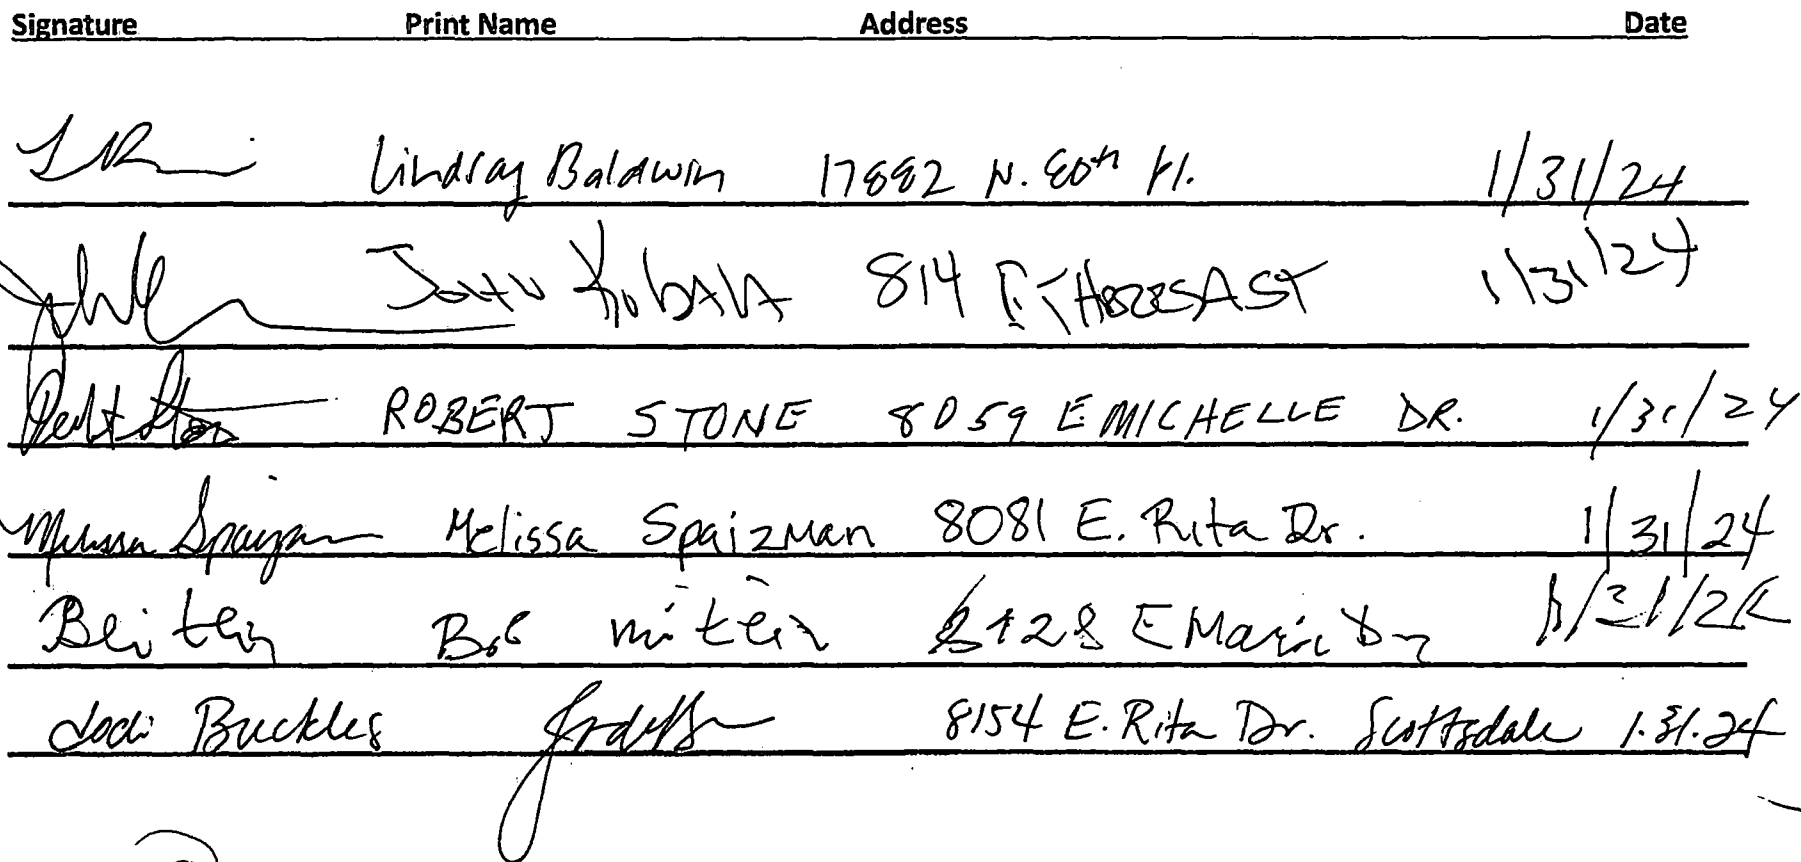 Signature Print Name Address Date
Lindsay Baldwin 17882 N. 80th Pl. 1/31/24
John 814 E THERESA ST 1/31/24
ROBERT STONE 8059 E MICHELLE DR. 1/31/24
Melissa Spaizman 8081 E. Rita Dr. 1/31/24
Bob E Marie Dr
Jodi Buckles 8154 E. Rita Dr. Scottsdale 1.31.24